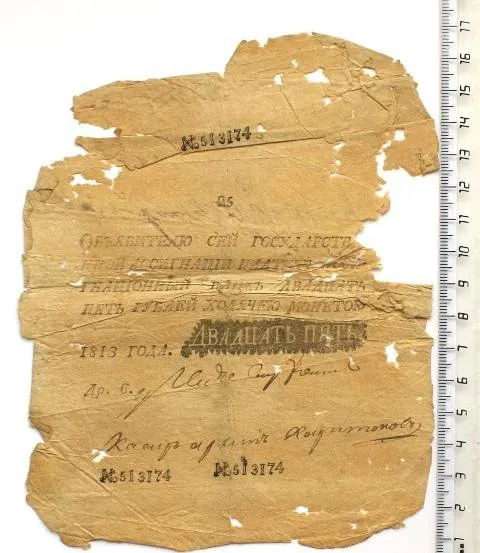 №513174
25
ОБЪЯВИТЕЛЮ СЕЙ ГОСУДАРСТВ
ННОЙ АССИГНАЦІИ ПЛАТИТЪ
ГНАЦІОННЫЙ БАНКЪ ДВАДЦАТЬ
ПЯТЬ РУБЛЕЙ ХОДЯЧЕЮ МОНЕТОЮ
ДВАДЦАТЬ ПЯТЬ
1813 ГОДА.
Кассиръ Харитоновъ
№513174 №513174
17
16
15
14
13
12
11
10
9
8
7
6
5
4
3
2
1